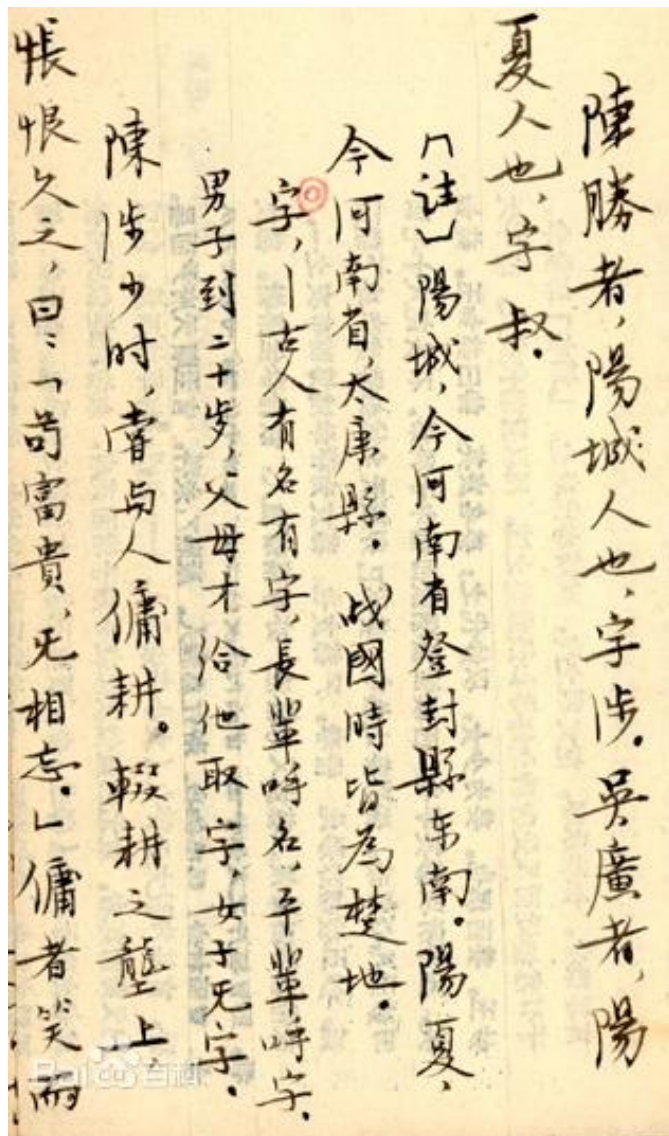 陳勝者，陽城人也，字涉。吳廣者，陽
夏人也，字叔。
〔註〕陽城，今河南省登封縣东南。陽夏，
今河南省，太康縣。战國時皆為楚地。
字，—古人有名有字，長輩呼名，平輩呼字。
男子到二十岁，父母才给他取字，女子无字。
陳涉少时，嘗与人傭耕。輟耕之壟上，
悵恨久之，曰：「苟富貴，无相忘。」傭者笑而
Bai 百科